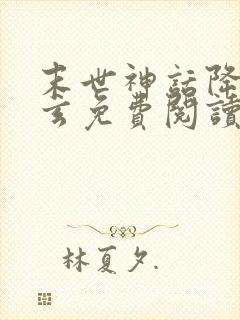 末世神話降
玄免費閱讀
林夏夕.